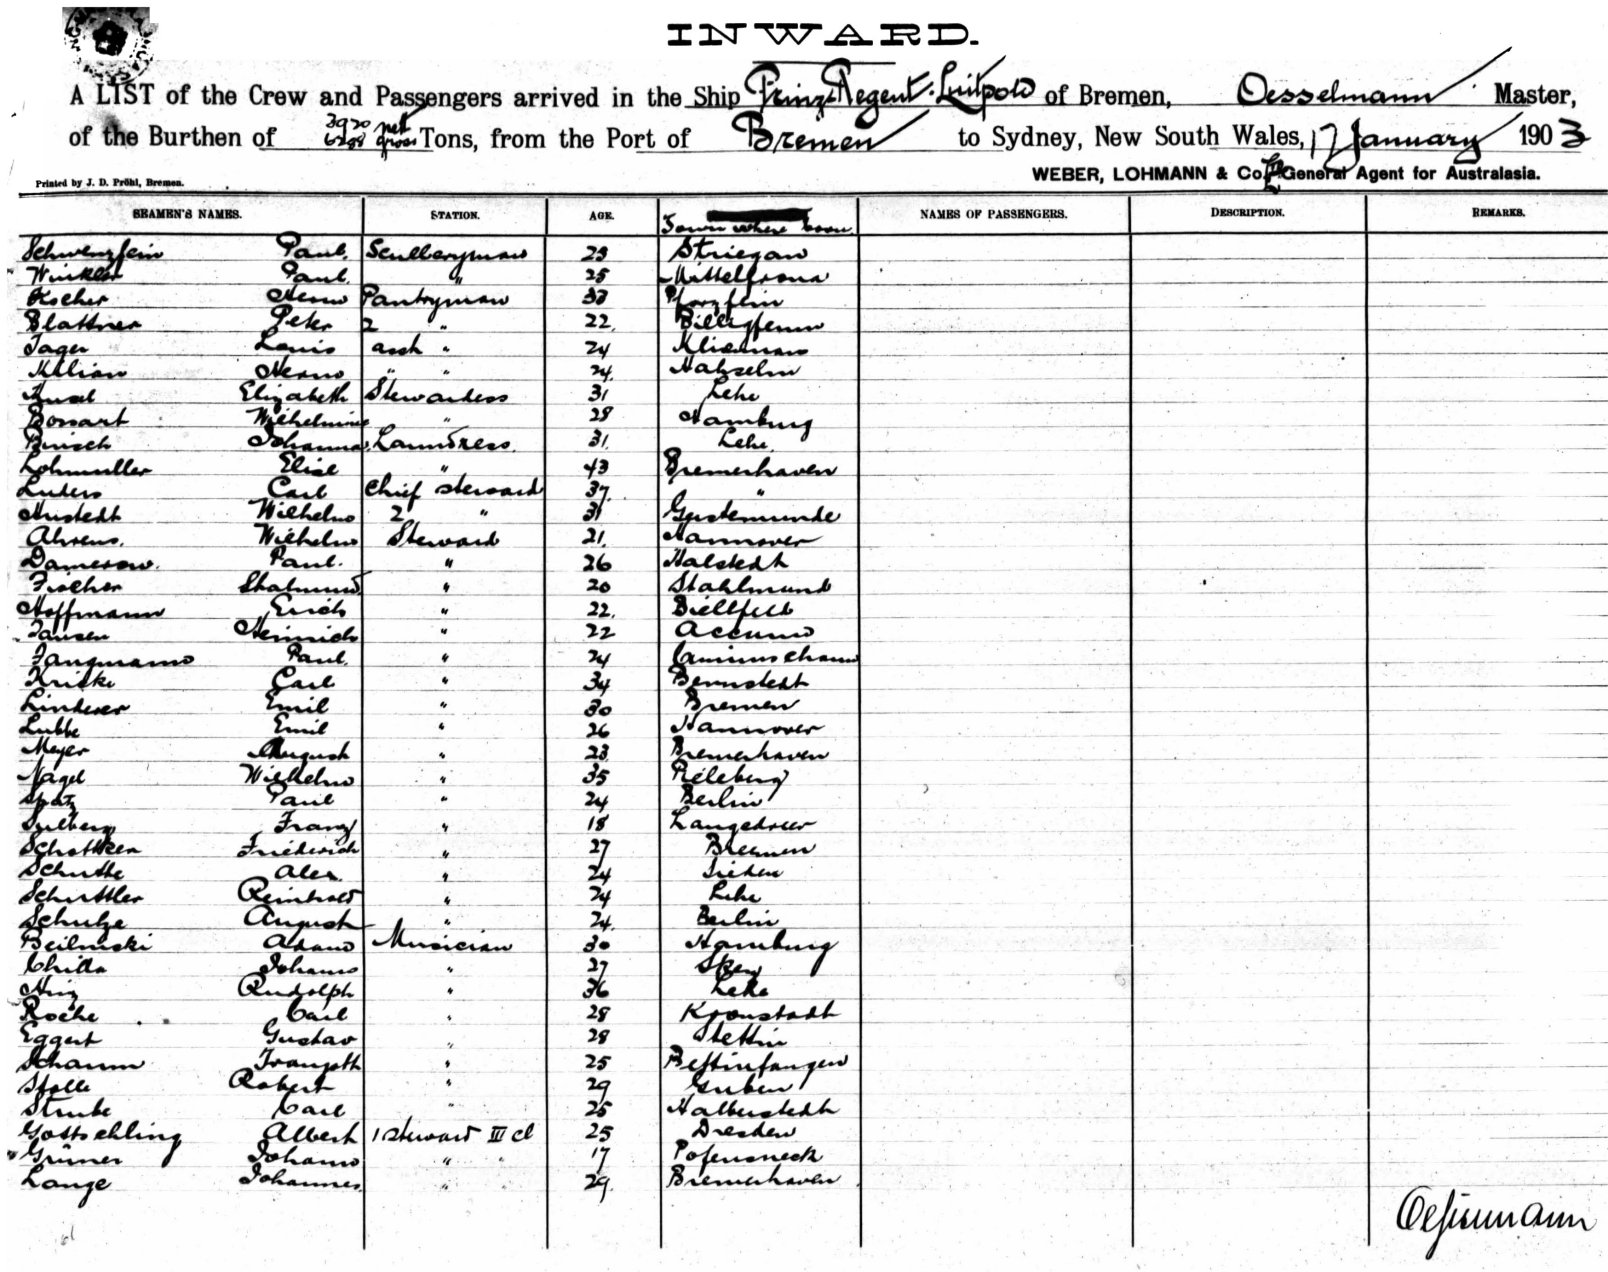 INWARD.
A LIST of the Crew and Passengers arrived in the Ship Prinz-Regent-Luitpold of Bremen, Oesselmann Master,
of the Burthen of 3920 net 6288 gross Tons, from the Port of Bremen to Sydney, New South Wales, 17 January 1903
WEBER, LOHMANN & Co. Ltd General Agent for Australasia.
Printed by J. D. Pröhl, Bremen.
SEAMEN'S NAMES. STATION. AGE. Town where born. NAMES OF PASSENGERS. DESCRIPTION. REMARKS.
Schwenzfein Paul. Sculleryman 23 Striegau
Winkler Paul. " 25
Kocher Pantryman 33
Blattner Peter 2 " 22.
Jager Louis asst " 24
Kilian " " 24.
Elizabeth Stewardess 31 Lehe
Bossart Wilhelmine " 28 Hamburg
Johanna Laundress. 31. Lehe
Lohmuller Elise " 43 Bremerhaven
Luders Carl Chief steward 37 "
Wilhelm 2 " 31 Geestemunde
Ahrens. Wilhelm Steward 21. Hannover
Damerow. Paul. " 26 Halstedt
Fischer " 20 Stahlmund
Hoffmann Erich " 22. Biellfeld
Jansen Heinrich " 22 Accum
Fangmann Paul. " 24
Kricke Carl " 34 Bernstedt
Linderer Emil " 30 Bremen
Lubbe Emil " 26 Hannover
Meyer August " 23 Bremerhaven
Nagel Wilhelm " 35
Spatz Paul " 24 Berlin
Sulberg Franz " 18 Langedreer
Schottker Friederich " 27 Bremen
Schutte Alex. " 24
Schuttler Reinhold " 24 Lehe
Schulze August " 24. Berlin
Beilinski Adam Musician 30 Hamburg
Johann " 27
Rudolph " 36 Lehe
Roche Carl " 28 Kronstadt
Eggert Gustav " 28 Stettin
Schaum Traugott " 25
Stolle Robert " 29 Guben
Strube Carl " 25 Halberstedt
Gottschling Albert 1 steward III cl 25 Dresden
Grüner Johann " " 17
Lange Johannes " " 29. Bremerhaven
Oesselmann